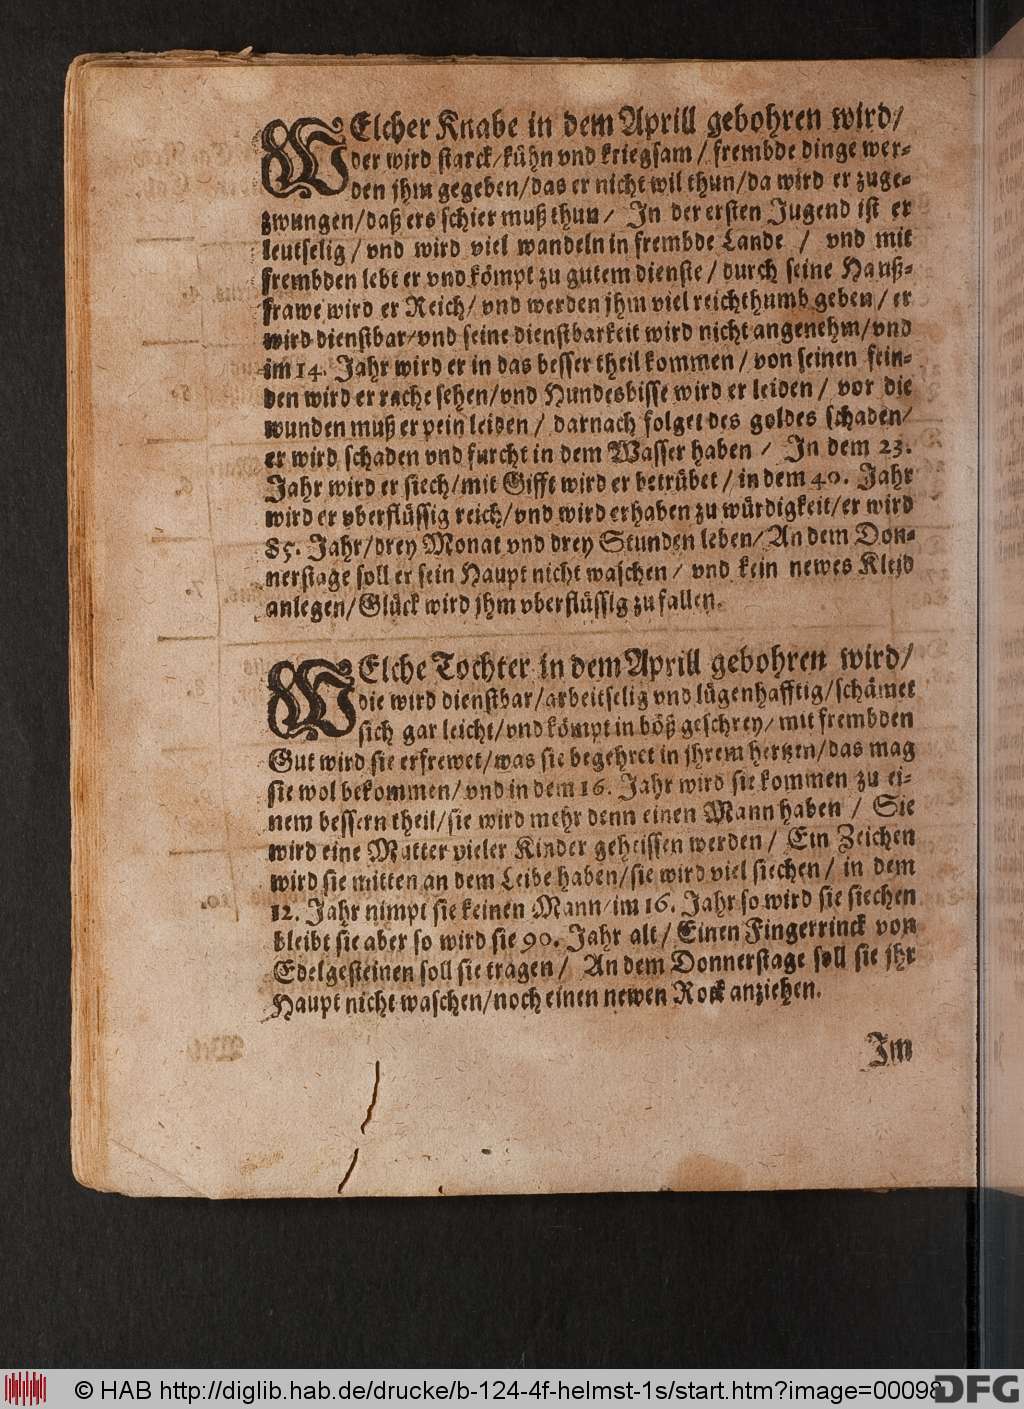 WElcher Knabe in dem Aprill gebohren wird/
der wird starck/kühn vnd kriegsam/ frembde dinge wer-
den jhm gegeben/das er nicht wil thun/da wird er zuge-
zwungen/daß ers schier muß thun/ In der ersten Jugend ist er
leutselig/ vnd wird viel wandeln in frembde Lande / vnd mit
frembden lebt er vnd kömpt zu gutem dienste/ durch seine Hauß-
frawe wird er Reich/ vnd werden jhm viel reichthumb geben/ er
wird dienstbar/vnd seine dienstbarkeit wird nicht angenehm/vnd
im 14. Jahr wird er in das besser theil kommen/ von seinen fein-
den wird er rache sehen/vnd Hundesbisse wird er leiden/ vor die
wunden muß er pein leiden/ darnach folget des goldes schaden/
er wird schaden vnd furcht in dem Wasser haben / In dem 23.
Jahr wird er siech/mit Gifft wird er betrübet/ in dem 40. Jahr
wird er vberflüssig reich/vnd wird erhaben zu würdigkeit/er wird
85. Jahr/drey Monat vnd drey Stunden leben/An dem Don-
nerstage soll er sein Haupt nicht waschen/ vnd kein newes Kleid
anlegen/Glück wird jhm vberflüssig zu fallen.
WElche Tochter in dem Aprill gebohren wird/
die wird dienstbar/arbeitselig vnd lügenhafftig/schämet
sich gar leicht/vnd kömpt in böß geschrey/ mit frembden
Gut wird sie erfrewet/was sie begehret in jhrem hertzen/das mag
sie wol bekommen/ vnd in dem 16. Jahr wird sie kommen zu ei-
nem bessern theil/sie wird mehr denn einen Mann haben / Sie
wird eine Mutter vieler Kinder geheissen werden/ Ein Zeichen
wird sie mitten an dem Leibe haben/sie wird viel siechen/ in dem
12. Jahr nimpt sie keinen Mann/im 16. Jahr so wird sie siechen
bleibt sie aber so wird sie 90. Jahr alt/ Einen Fingerrinck von
Edelgesteinen soll sie tragen/ An dem Donnerstage soll sie jhr
Haupt nicht waschen/noch einen newen Rock anziehen.
Im
© HAB http://diglib.hab.de/drucke/b-124-4f-helmst-1s/start.htm?image=00098
DFG